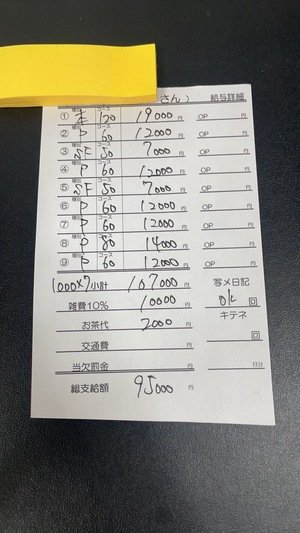 さん) 給与詳細
① 種別 本 コース 120 19000円 OP 円
② 種別 P コース 60 12000円 OP 円
③ 種別 SF コース 50 7000円 OP 円
④ 種別 P コース 60 12000円 OP 円
⑤ 種別 SF コース 50 7000円 OP 円
⑥ 種別 P コース 60 12000円 OP 円
⑦ 種別 P コース 60 12000円 OP 円
⑧ 種別 P コース 80 14000円 OP 円
⑨ 種別 P コース 60 12000円 OP 円
1000×7 小計 107000円 写メ日記
雑費10% 10000円 ok 回
お茶代 2000円 キテネ
交通費 円 回
当欠罰金 円 日分
総支給額 95000円